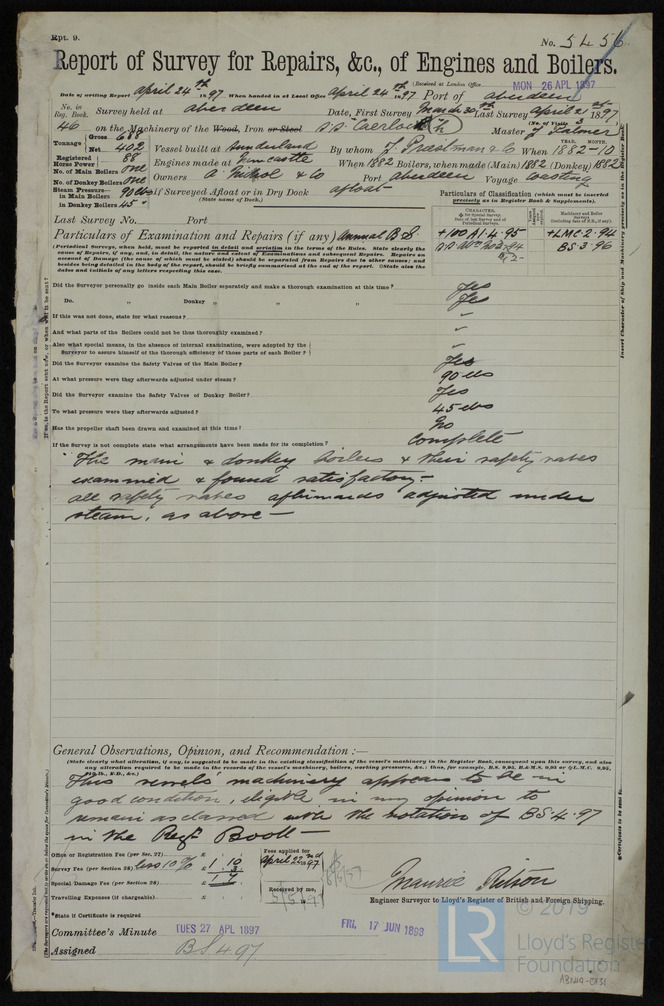 Rpt. 9.
No. 5456
Report of Survey for Repairs, &c., of Engines and Boilers.
(Received at London Office MON 26 APL 1897
Date of writing Report April 24th 1897 When handed in at Local Office April 24th 1897 Port of Aberdeen
No. in Reg. Book. 46 Survey held at Aberdeen Date, First Survey March 30th Last Survey April 21st 1897
(No. of Visits 3
on the Machinery of the Wood, Iron or Steel S.S. Master J. Latmer
Tonnage Gross 688 Net 402 Vessel built at Sunderland By whom When 1882-10
YEAR. MONTH.
Registered Horse Power 88 Engines made at Newcastle When 1882 Boilers, when made (Main) 1882 (Donkey) 1882
No. of Main Boilers One
No. of Donkey Boilers One Owners A. Nichol & Co Port Aberdeen Voyage Coasting
Steam Pressure in Main Boilers 90 lbs If Surveyed Afloat or in Dry Dock afloat
in Donkey Boilers 45 "
(State name of Dock.)
Particulars of Classification (which must be inserted precisely as in Register Book & Supplements).
Last Survey No. Port
+100A1.4.95 +LMC 2.94
BS 3.96
Particulars of Examination and Repairs (if any) Annual B.S
(Periodical Surveys, when held, must be reported in detail and seriatim in the terms of the Rules. State clearly the
cause of Repairs, if any, and, in detail, the nature and extent of Examinations and subsequent Repairs. Repairs on
account of Damage (the cause of which must be stated) should be separated from Repairs due to other causes; and
besides being detailed in the body of the report, should be briefly summarised at the end of the report. State also the
dates and initials of any letters respecting this case.
Did the Surveyor personally go inside each Main Boiler separately and make a thorough examination at this time? Yes
Do. " Donkey " " " Yes
If this was not done, state for what reasons? "
And what parts of the Boilers could not be thus thoroughly examined? "
Also what special means, in the absence of internal examination, were adopted by the
Surveyor to assure himself of the thorough efficiency of those parts of each Boiler? "
Did the Surveyor examine the Safety Valves of the Main Boiler? Yes
At what pressure were they afterwards adjusted under steam? 90 lbs
Did the Surveyor examine the Safety Valves of Donkey Boiler? Yes
To what pressure were they afterwards adjusted? 45 lbs
Has the propeller shaft been drawn and examined at this time? No
If the Survey is not complete state what arrangements have been made for its completion? Complete
The main & donkey boilers & their safety valves
examined & found satisfactory.-
All safety valves afterwards adjusted under
steam, as above —
General Observations, Opinion, and Recommendation :—
(State clearly what alteration, if any, is suggested to be made in the existing classification of the vessel's machinery in the Register Book, consequent upon this survey, and also
any alteration required to be made in the records of the vessel's machinery, boilers, working pressures, &c.; thus, for example, B.S. 9,95, B.&M.S. 9,95 or L.M.C. 9,95,
This vessels' machinery appears to be in
good condition, eligible in my opinion to
remain as classed with the notation of BS 4.97
in the Regr Book —
Office or Registration Fee (per Sec. 27) £
Survey Fee (per Section 28) less 10% £ 1 10
Special Damage Fee (per Section 28) £
Travelling Expenses (if chargeable) £
Fees applied for April 22nd 1897
Received by me,
Maurice Ritson
Engineer Surveyor to Lloyd's Register of British and Foreign Shipping.
*State if Certificate is required
Committee's Minute TUES 27 APL 1897 FRI. 17 JUN 1898
Assigned BS 4.97
© 2019
LR
Lloyd's Register
Foundation